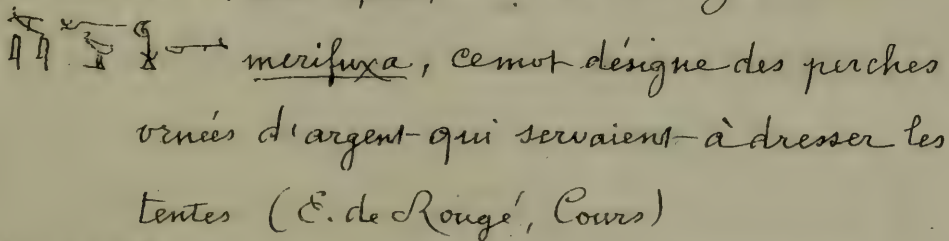 merifuxa, ce mot désigne des perches
ornées d'argent qui servaient à dresser les
tentes (E. de Rougé, Cours)